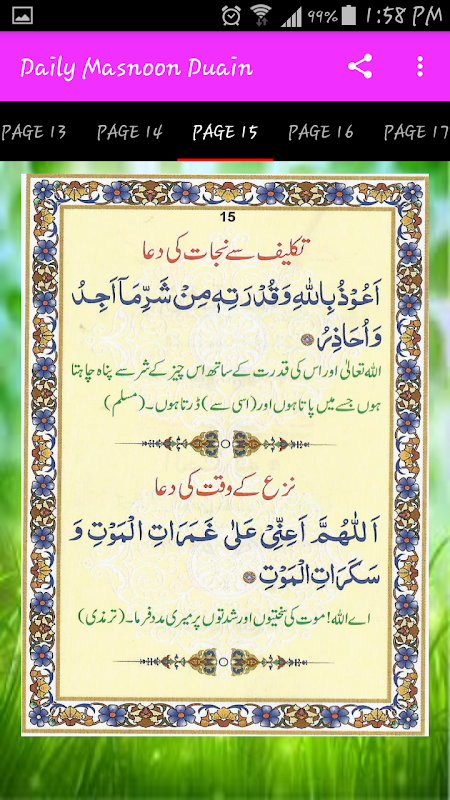 99% 1:58 PM
Daily Masnoon Duain
PAGE 13 PAGE 14 PAGE 15 PAGE 16 PAGE 17
15
تکلیف سے نجات کی دعا
اَعُوْذُ بِاللهِ وَقُدْرَتِهٖ مِنْ شَرِّ مَآ اَجِدُ
وَاُحَاذِرُ
اللہ تعالیٰ اور اس کی قدرت کے ساتھ اس چیز کے شر سے پناہ چاہتا
ہوں جسے میں پاتا ہوں اور (اسی سے) ڈرتا ہوں۔ (مسلم)
نزع کے وقت کی دعا
اَللّٰهُمَّ اَعِنِّیْ عَلٰی غَمَرَاتِ الْمَوْتِ وَ
سَكَرَاتِ الْمَوْتِ
اے اللہ! موت کی سختیوں اور شدتوں پر میری مدد فرما۔ (ترمذی)